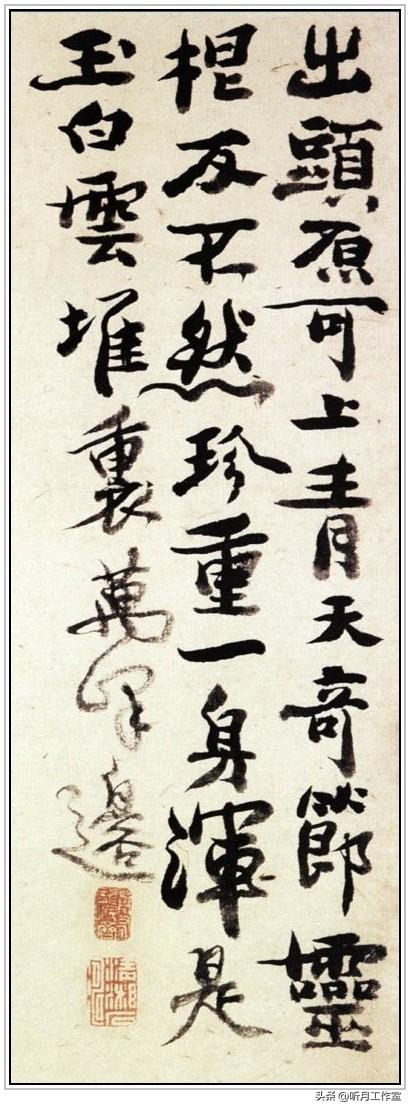 出頭原可上青天奇節靈
根反不然珍重一身渾是
玉白雲堆裏萬峯邊
头条 @听月工作室